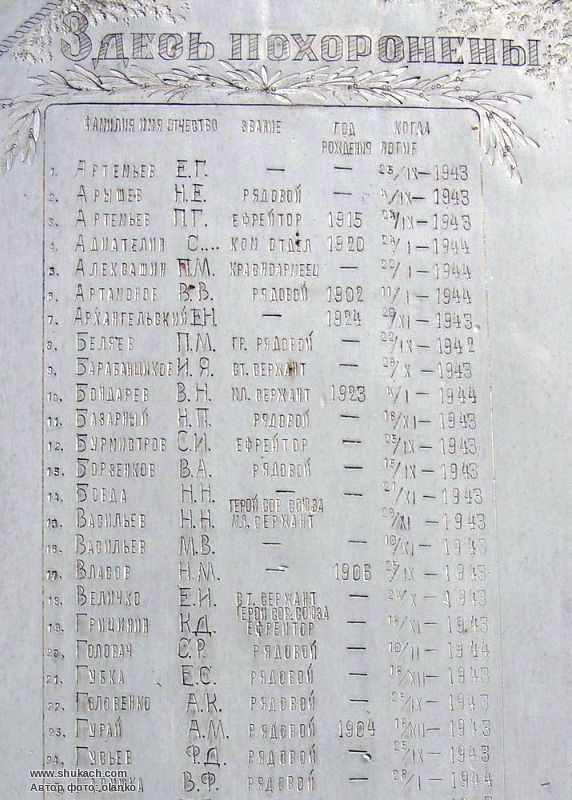 Здесь похоронены
ФАМИЛИЯ ИМЯ ОТЧЕСТВО ЗВАНИЕ ГОД РОЖДЕНИЯ КОГДА ПОГИБ
1. АРТЕМЬЕВ Е.Г. — — 23/IX — 1943
2. АРЫШЕВ Н.Е. РЯДОВОЙ — /IX — 1943
3. АРТЕМЬЕВ П.Г. ЕФРЕЙТОР 1915 /IX — 1943
4. АДИАТЕЛИН С.... КОМ ОТДЕЛ 1920 /I — 1944
5. АЛЕКВАШИН П.М. КРАСНОАРМЕЕЦ — 22/I — 1944
6. АРТАМОНОВ В.В. РЯДОВОЙ 1902 11/I — 1944
7. АРХАНГЕЛЬСКИЙ Е.Н. — 1924 /XI — 1943
8. БЕЛЯЕВ П.М. ГР. РЯДОВОЙ — — 1942
9. БАРАБАНЩИКОВ И.Я. СТ. СЕРЖАНТ — /X — 1943
10. БОНДАРЕВ В.Н. МЛ. СЕРЖАНТ 1923 /I — 1944
11. БАЗАРНЫЙ Н.П. РЯДОВОЙ — 18/XI — 1943
12. БУРМИСТРОВ С.И. ЕФРЕЙТОР — 25/IX — 1943
13. БОРЗЕНКОВ В.А. РЯДОВОЙ — 25/IX — 1943
14. БОВДА Н.Н. — — /XI — 1943
ГЕРОЙ СОВ. СОЮЗА
15. ВАСИЛЬЕВ Н.Н. МЛ. СЕРЖАНТ — /XI — 1943
16. ВАСИЛЬЕВ М.В. — — 10/XI — 1943
17. ВЛАСОВ Н.М. — 1906 /IX — 1943
18. ВЕЛИЧКО Е.И. СТ. СЕРЖАНТ — /X — 1943
ГЕРОЙ СОВ. СОЮЗА
19. ГРИЦИНИН К.Д. ЕФРЕЙТОР — 16/XI — 1943
20. ГОЛОВАЧ С.Р. РЯДОВОЙ — 10/II — 1944
21. ГУБКА Е.С. РЯДОВОЙ — 18/XII — 1943
22. ГОЛОВЕНКО А.К. РЯДОВОЙ — 25/IX — 1943
23. ГУРАЙ А.М. РЯДОВОЙ 1904 /XII — 1943
24. ГУСЬЕВ Ф.Д. РЯДОВОЙ — 25/I — 1943
В.Ф. РЯДОВОЙ — 28/I — 1944
www.shukach.com
Автор фото: olanko